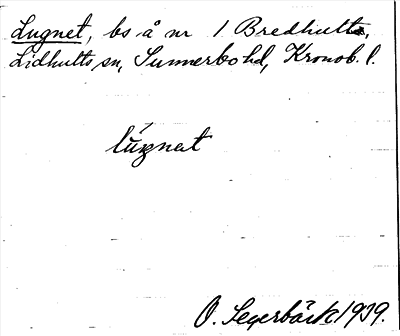 Lugnet, bs å nr 1 Bredhult,
Lidhults sn, Sunnerbo hd, Kronob. l.
lúgnat
O. Segerbäck 1939.